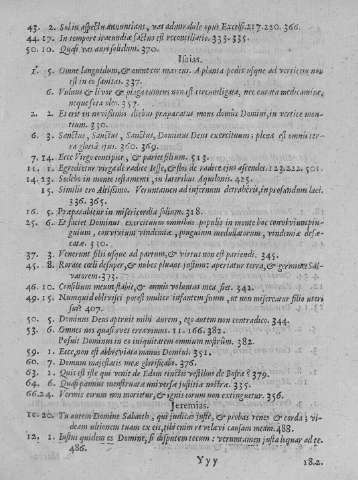 43. 2. Sol in aspectu annuntians, vas admirabile opus Excelsi. 217. 220. 366.
44. 17. In tempore iracundiæ factus est reconciliatio. 333. 335.
50. 10. Quasi vas auri solidum. 370.
Isaias.
1. 5. Omne caput languidum, & omne cor mærens. A planta pedis usque ad verticem non
est in eo sanitas. 237.
6. Vulnus & livor & plaga tumens non est circumligata, nec curata medicamine,
neque fota oleo. 357.
2. 2. Et erit in novissimis diebus præparatus mons domus Domini, in vertice mon-
tium. 330.
6. 3. Sanctus, Sanctus, Sanctus, Dominus Deus exercituum: plena est omnis ter-
ra gloria ejus. 360. 369.
7. 14. Ecce Virgo concipiet, & pariet filium. 513.
11. 1. Egredietur virga de radice Iesse, & flos de radice ejus ascendet. 123. 222. 501.
14. 13. Sedebo in monte testamenti, in lateribus Aquilonis. 425.
15. Similis ero Altissimo. Verumtamen ad infernum detraheris, in profundum laci.
336. 365.
16. 5. Præparabitur in misericordia solium. 318.
25. 6. Et faciet Dominus exercituum omnibus populis in monte hoc convivium pin-
guium, convivium vindemiæ, pinguium medullatorum, vindemiæ defæ-
catæ. 310.
37. 3. Venerunt filii usque ad partum, & virtus non est pariendi. 345.
45. 8. Rorate cæli desuper, & nubes pluant justum: aperiatur terra, & germinet Sal-
vatorem. 373.
46. 10. Consilium meum stabit, & omnis voluntas mea fiet. 342.
49. 15. Numquid oblivisci potest mulier infantem suum, ut non misereatur filio uteri
sui? 407.
50. 5. Dominus Deus aperuit mihi aurem, ego autem non contradico. 344.
53. 6. Omnes nos quasi oves erravimus. 11. 166. 382.
Posuit Dominus in eo iniquitatem omnium nostrûm. 382.
59. 1. Ecce, non est abbreviata manus Domini. 351.
60. 7. Domum majestatis meæ glorificabo. 376.
63. 1. Quis est iste qui venit de Edom tinctis vestibus de Bosra? 379.
64. 6. Quasi pannus menstruatæ universæ justitiæ nostræ. 335.
66. 24. Vermis eorum non morietur, & ignis eorum non extinguetur. 356.
Jeremias.
11. 20. Tu autem Domine Sabaoth, qui judicas justè, & probas renes & corda: vi-
deam ultionem tuam ex eis, tibi enim revelavi causam meam. 488.
12. 1. Iustus quidem es Domine, si disputem tecum: verumtamen justa loquar ad te.
486.
Yyy 18. 2.